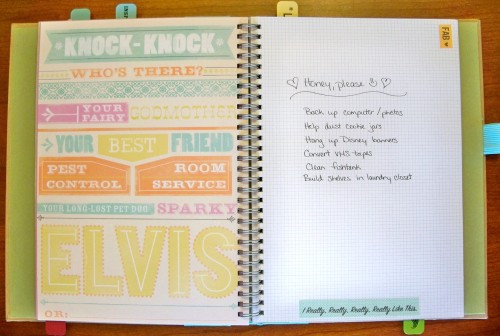 KNOCK-KNOCK
WHO'S THERE?
YOUR FAIRY GODMOTHER
YOUR BEST FRIEND
PEST CONTROL
ROOM SERVICE
YOUR LONG-LOST PET DOG SPARKY
ELVIS
OR:
FAB
Honey, please
Back up computer/photos
Help dust cookie jars
Hang up Disney banners
Convert VHS tapes
Clean fishtank
Build shelves in laundry closet
I Really, Really, Really, Really Like This.